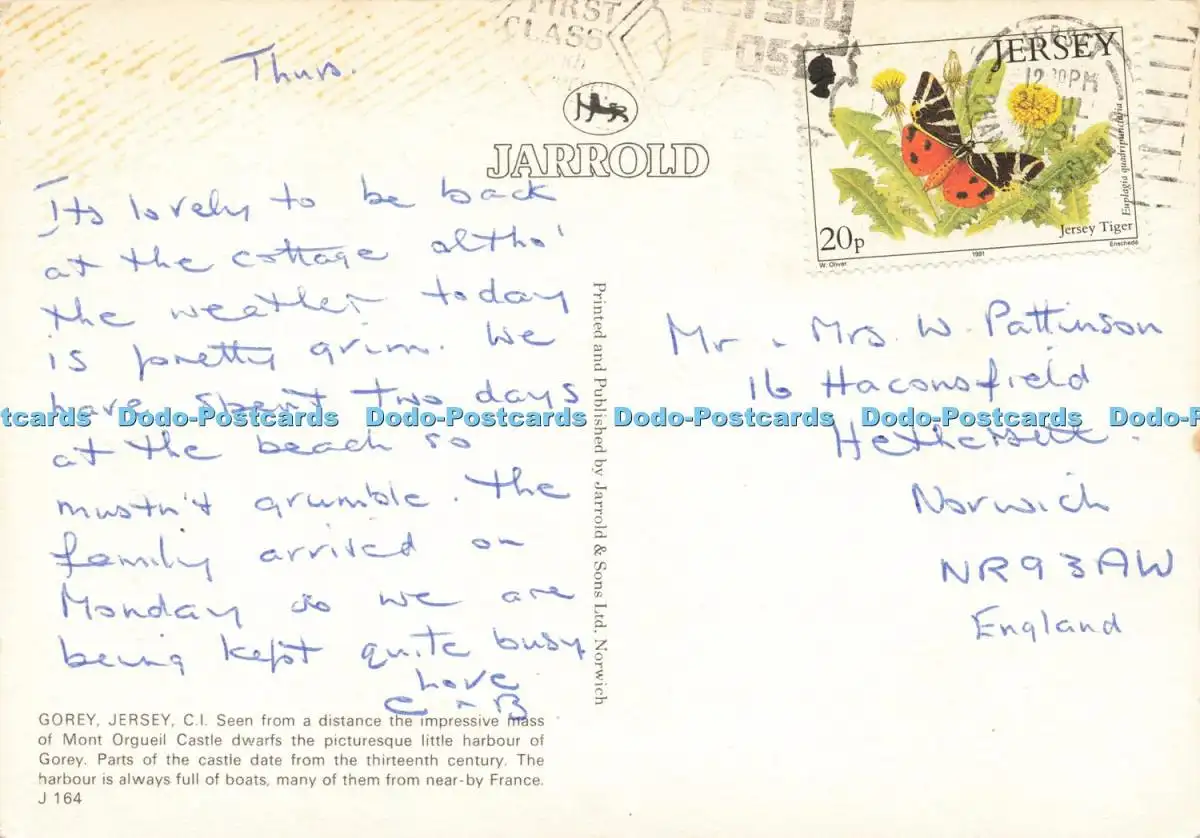 Thurs.
FIRST
CLASS
Jersey
Post
JARROLD
Its lovely to be back
at the cottage altho'
the weather today
is pretty grim. We
have spent two days
at the beach so
mustn't grumble. The
family arrived on
Monday so we are
being kept quite busy
Love
C + B
GOREY, JERSEY, C.I. Seen from a distance the impressive mass
of Mont Orgueil Castle dwarfs the picturesque little harbour of
Gorey. Parts of the castle date from the thirteenth century. The
harbour is always full of boats, many of them from near-by France.
J 164
Printed and Published by Jarrold & Sons Ltd. Norwich
JERSEY
12 30PM
Euplagia quadripunctaria
Jersey Tiger
20p
W. Oliver
1991
Enschedé
Mr + Mrs. W. Pattinson
16 Haconsfield
Hethersett.
Norwich
NR9 3AW
England
Dodo-Postcards Dodo-Postcards Dodo-Postcards Dodo-Postcards